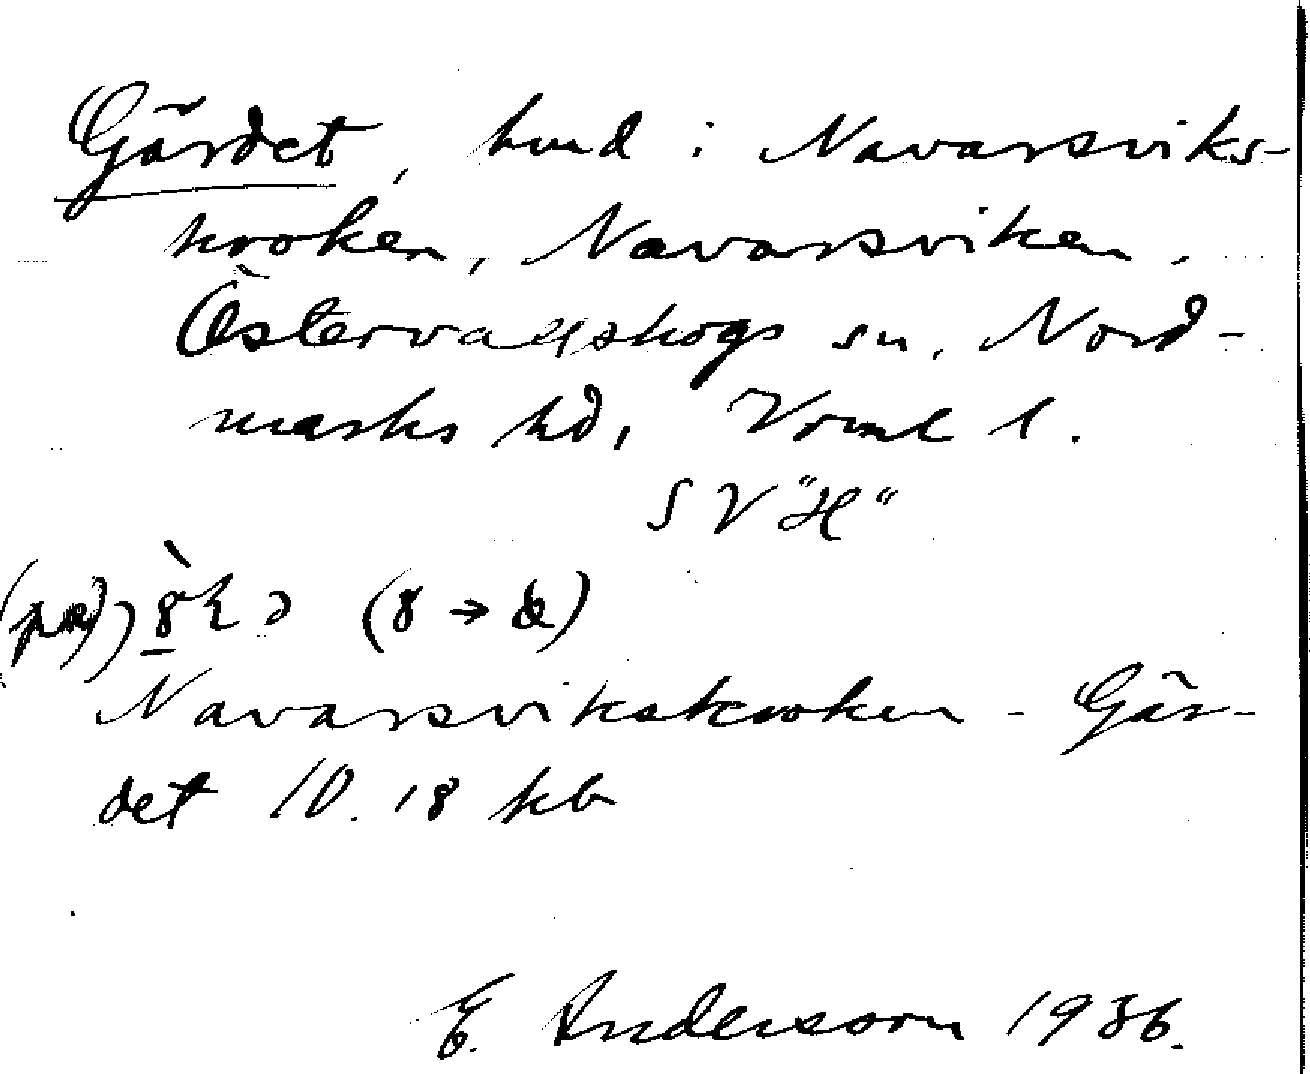 Gärdet, hmd i Navarsviks-
kroken, Navarsviken,
Östervallskogs sn, Nord-
marks hd, Vrml l.
SV "H"
(på)
Navarsvikskroken - Gär-
det 10.18 kb
E. Anderson 1936.